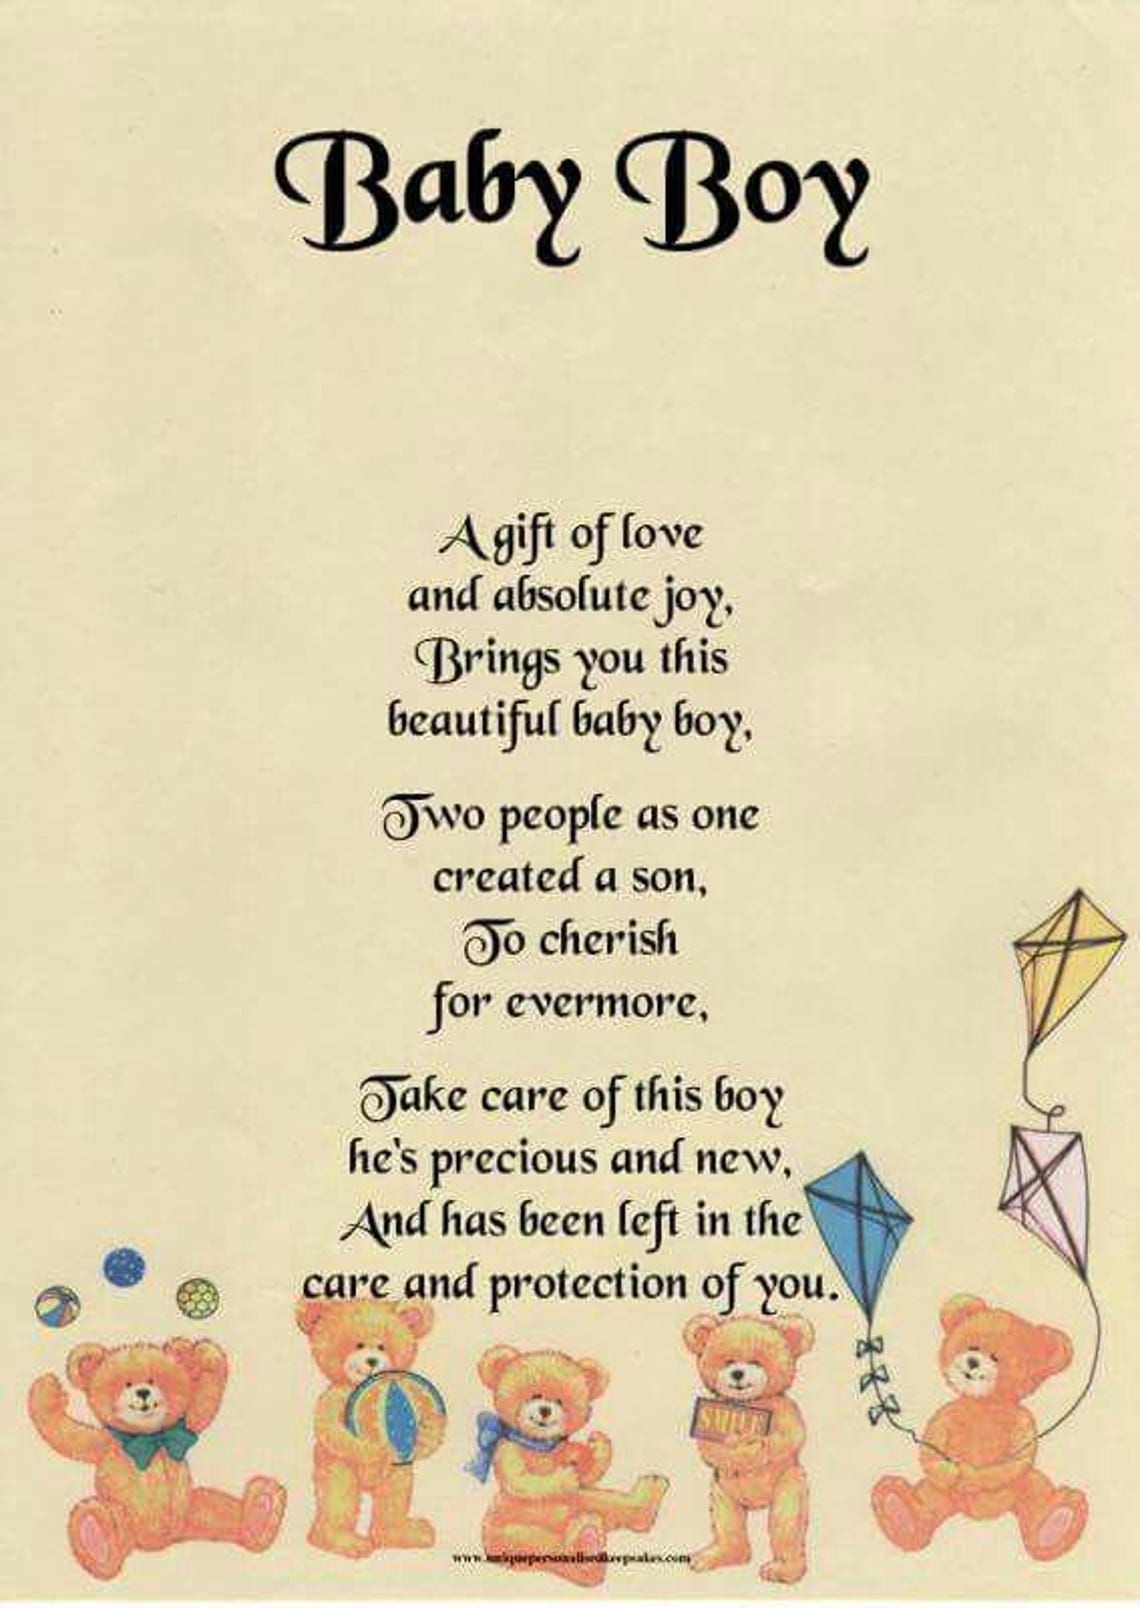 Baby Boy
A gift of love
and absolute joy,
Brings you this
beautiful baby boy,
Two people as one
created a son,
To cherish
for evermore,
Take care of this boy
he's precious and new,
And has been left in the
care and protection of you.
SMILE
www.uniquepersonalisedkeepsakes.com